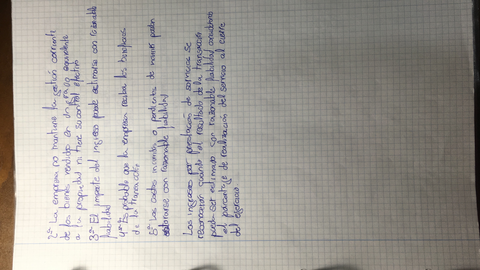 2ª La empresa no mantiene la gestión corriente
de los bienes vendidos en un grado equivalente
a su propiedad ni tiene su control efectivo
3ª El importe del ingreso puede estimarse con razonable
fiabilidad
4ª Es probable que la empresa reciba los beneficios
de la transacción
5ª Los costes incurridos o pendientes de incurrir puedan
valorarse con razonable fiabilidad
Los ingresos por prestación de servicios se
reconocerán cuando el resultado de la transacción
pueda ser estimado con razonable fiabilidad considerando
el porcentaje de realización del servicio al cierre
del ejercicio